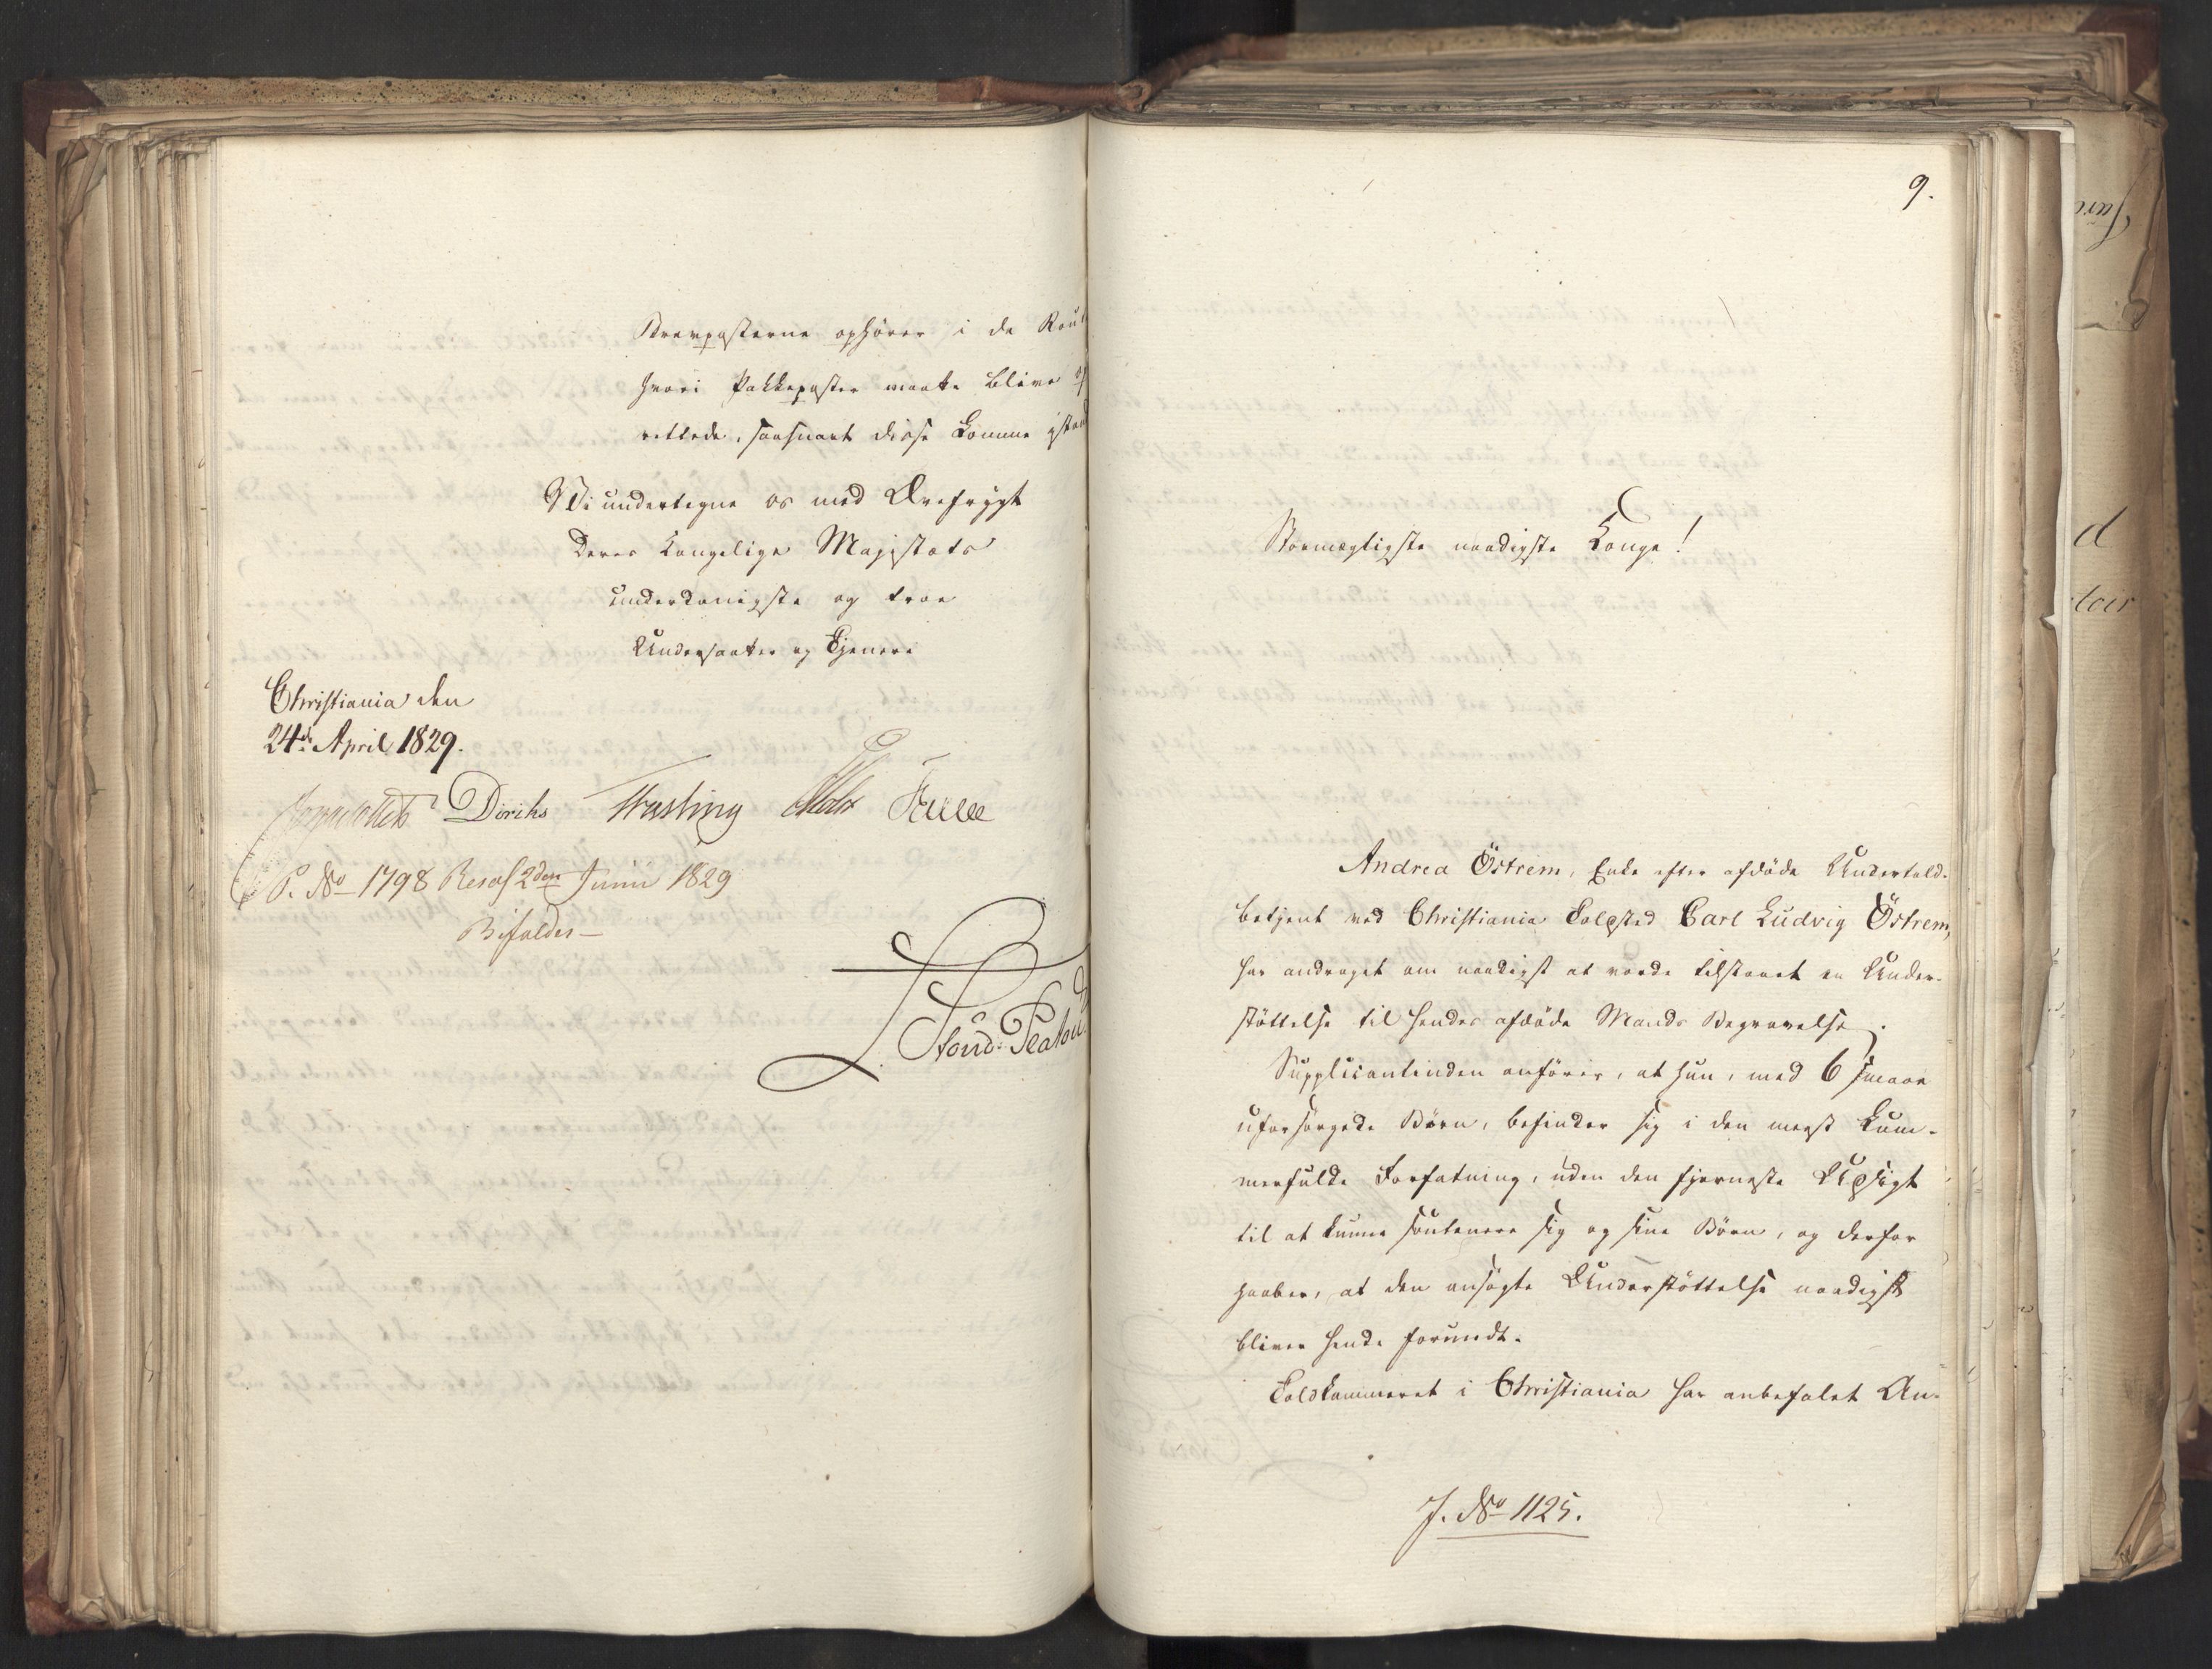 Brevposterne ophører i de
hvori Pakkeposter maatte blive
rettede, saasnart disse komme istand
Vi undertegne os med Ærefrygt
Deres Kongelige Majestæts
underdanigste og troe
Undersaatter og Tjenere
Christiania den
24de April 1829.
Diriks Fasting
P. No 1798 Resol 2den Junii 1829
Bifaldes
9.
Stormægtigste naadigste Konge!
Andrea Östrem, Enke efter afdöde Undertold-
betjent ved Christiania Toldsted Carl Ludvig Östrem,
har andraget om naadigst at vorde tilstaaet en Under-
støttelse til hendes afdöde Mands Begravelse.
Supplicantinden anförer, at hun, med 6 smaae
uforsörgede Börn, befinder sig i den meest kum-
merfulde Forfatning, uden den fjerneste Udsigt
til at kunne soutenere sig og sine Börn, og derfor
haaber, at den ansögte Understöttelse naadigst
bliver hende forundt.
Toldkammeret i Christiania har anbefalet An-
J. No 1125.